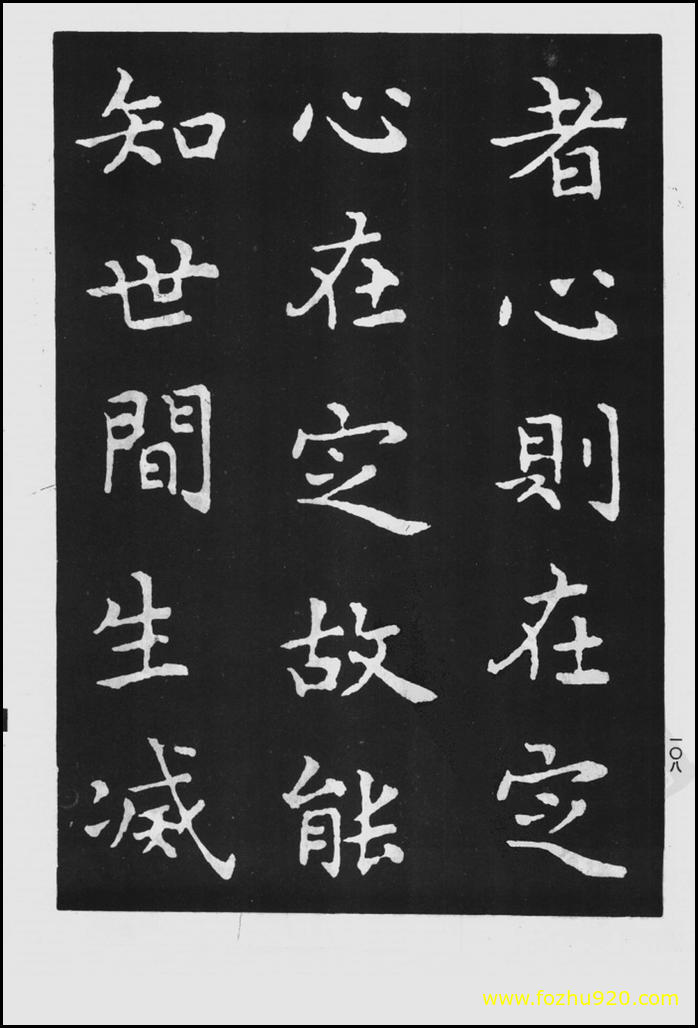 者心則在定
心在定故能
知世間生滅
一〇八
www.fozhu920.com